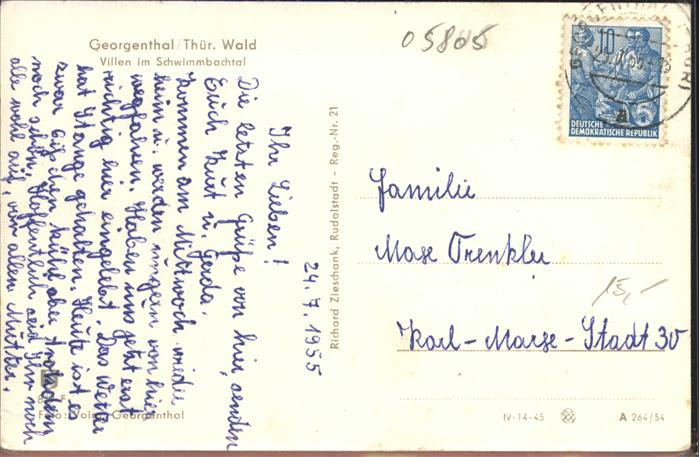 Georgenthal/Thür. Wald
Villen im Schwimmbachtal
05805
10
DEUTSCHE
DEMOKRATISCHE REPUBLIK
24.7.1955
Ihr Lieben!
Die letzten Grüße von hier, senden
Euch Kurt u. Gerda.
Kommen am Mittwoch wieder
heim u. werden ungern von hier
wegfahren. Haben uns jetzt erst
richtig hier eingelebt. Das Wetter
hat Stange gehalten. Heute ist es
zwar bißchen kühl aber trotzdem
noch schön. Hoffentlich seid Ihr noch
alle wohl auf, vor allem Mutter.
Foto: Georgenthal
Richard Zieschank, Rudolstadt - Reg.-Nr. 21
Familie
Max Trenkler
15,-
Karl-Marx-Stadt 30
IV-14-45
A 264/54